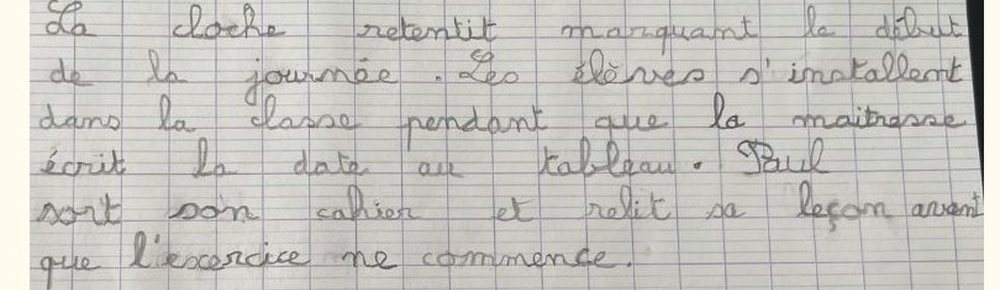 La cloche retentit marquant le début
de la journée. Les élèves s'installent
dans la classe pendant que la maitresse
écrit la date au tableau. Paul
sort son cahier et relit sa leçon avant
que l'excerdice ne commence.